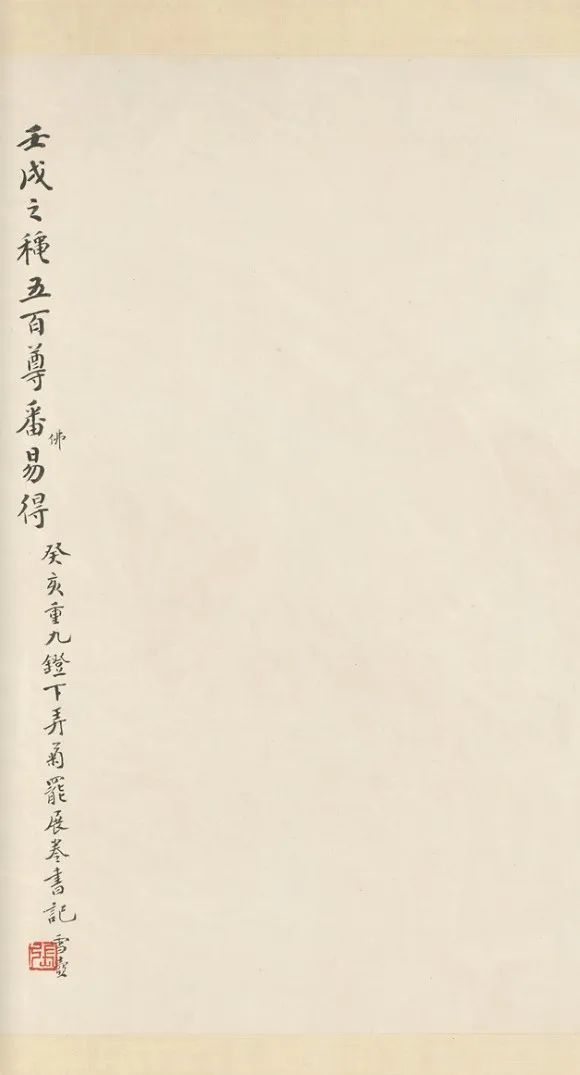 癸亥重九鐙下弄菊罷展卷書記 雪壺
壬戌之穐五百尊番易得
佛
張